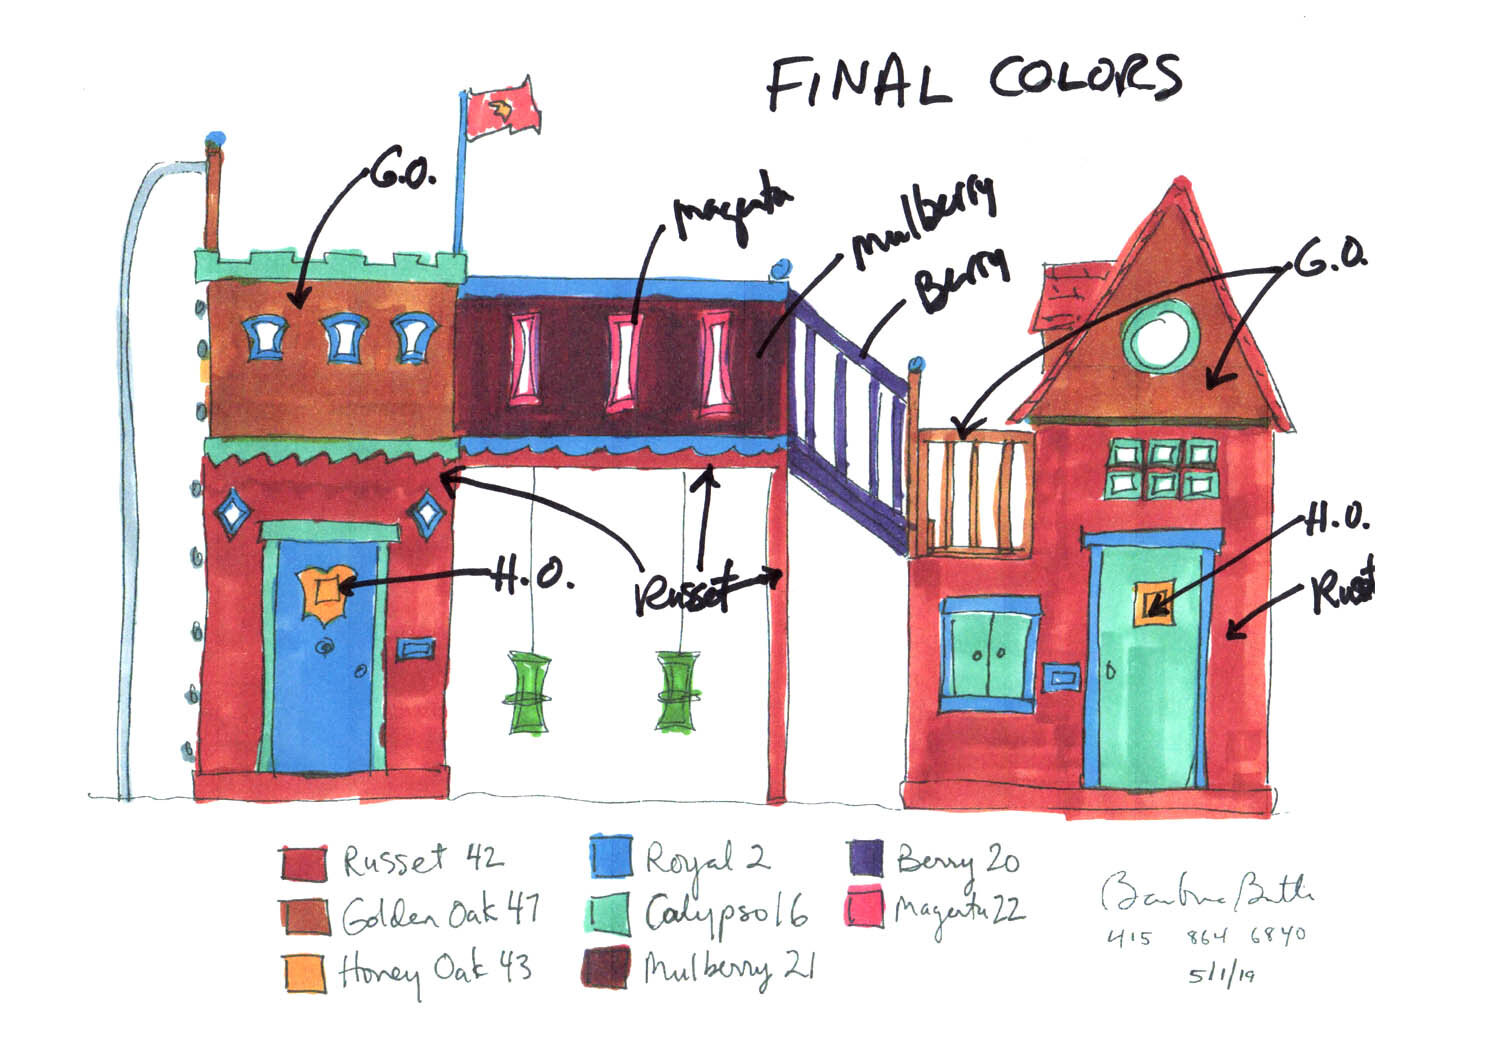 FINAL COLORS
G.O.
Magenta
Mulberry
Berry
G.O.
H.O.
Russet
H.O.
Russet
Russet 42
Golden Oak 47
Honey Oak 43
Royal 2
Calypso 16
Mulberry 21
Berry 20
Magenta 22
415 864 6840
5/1/19